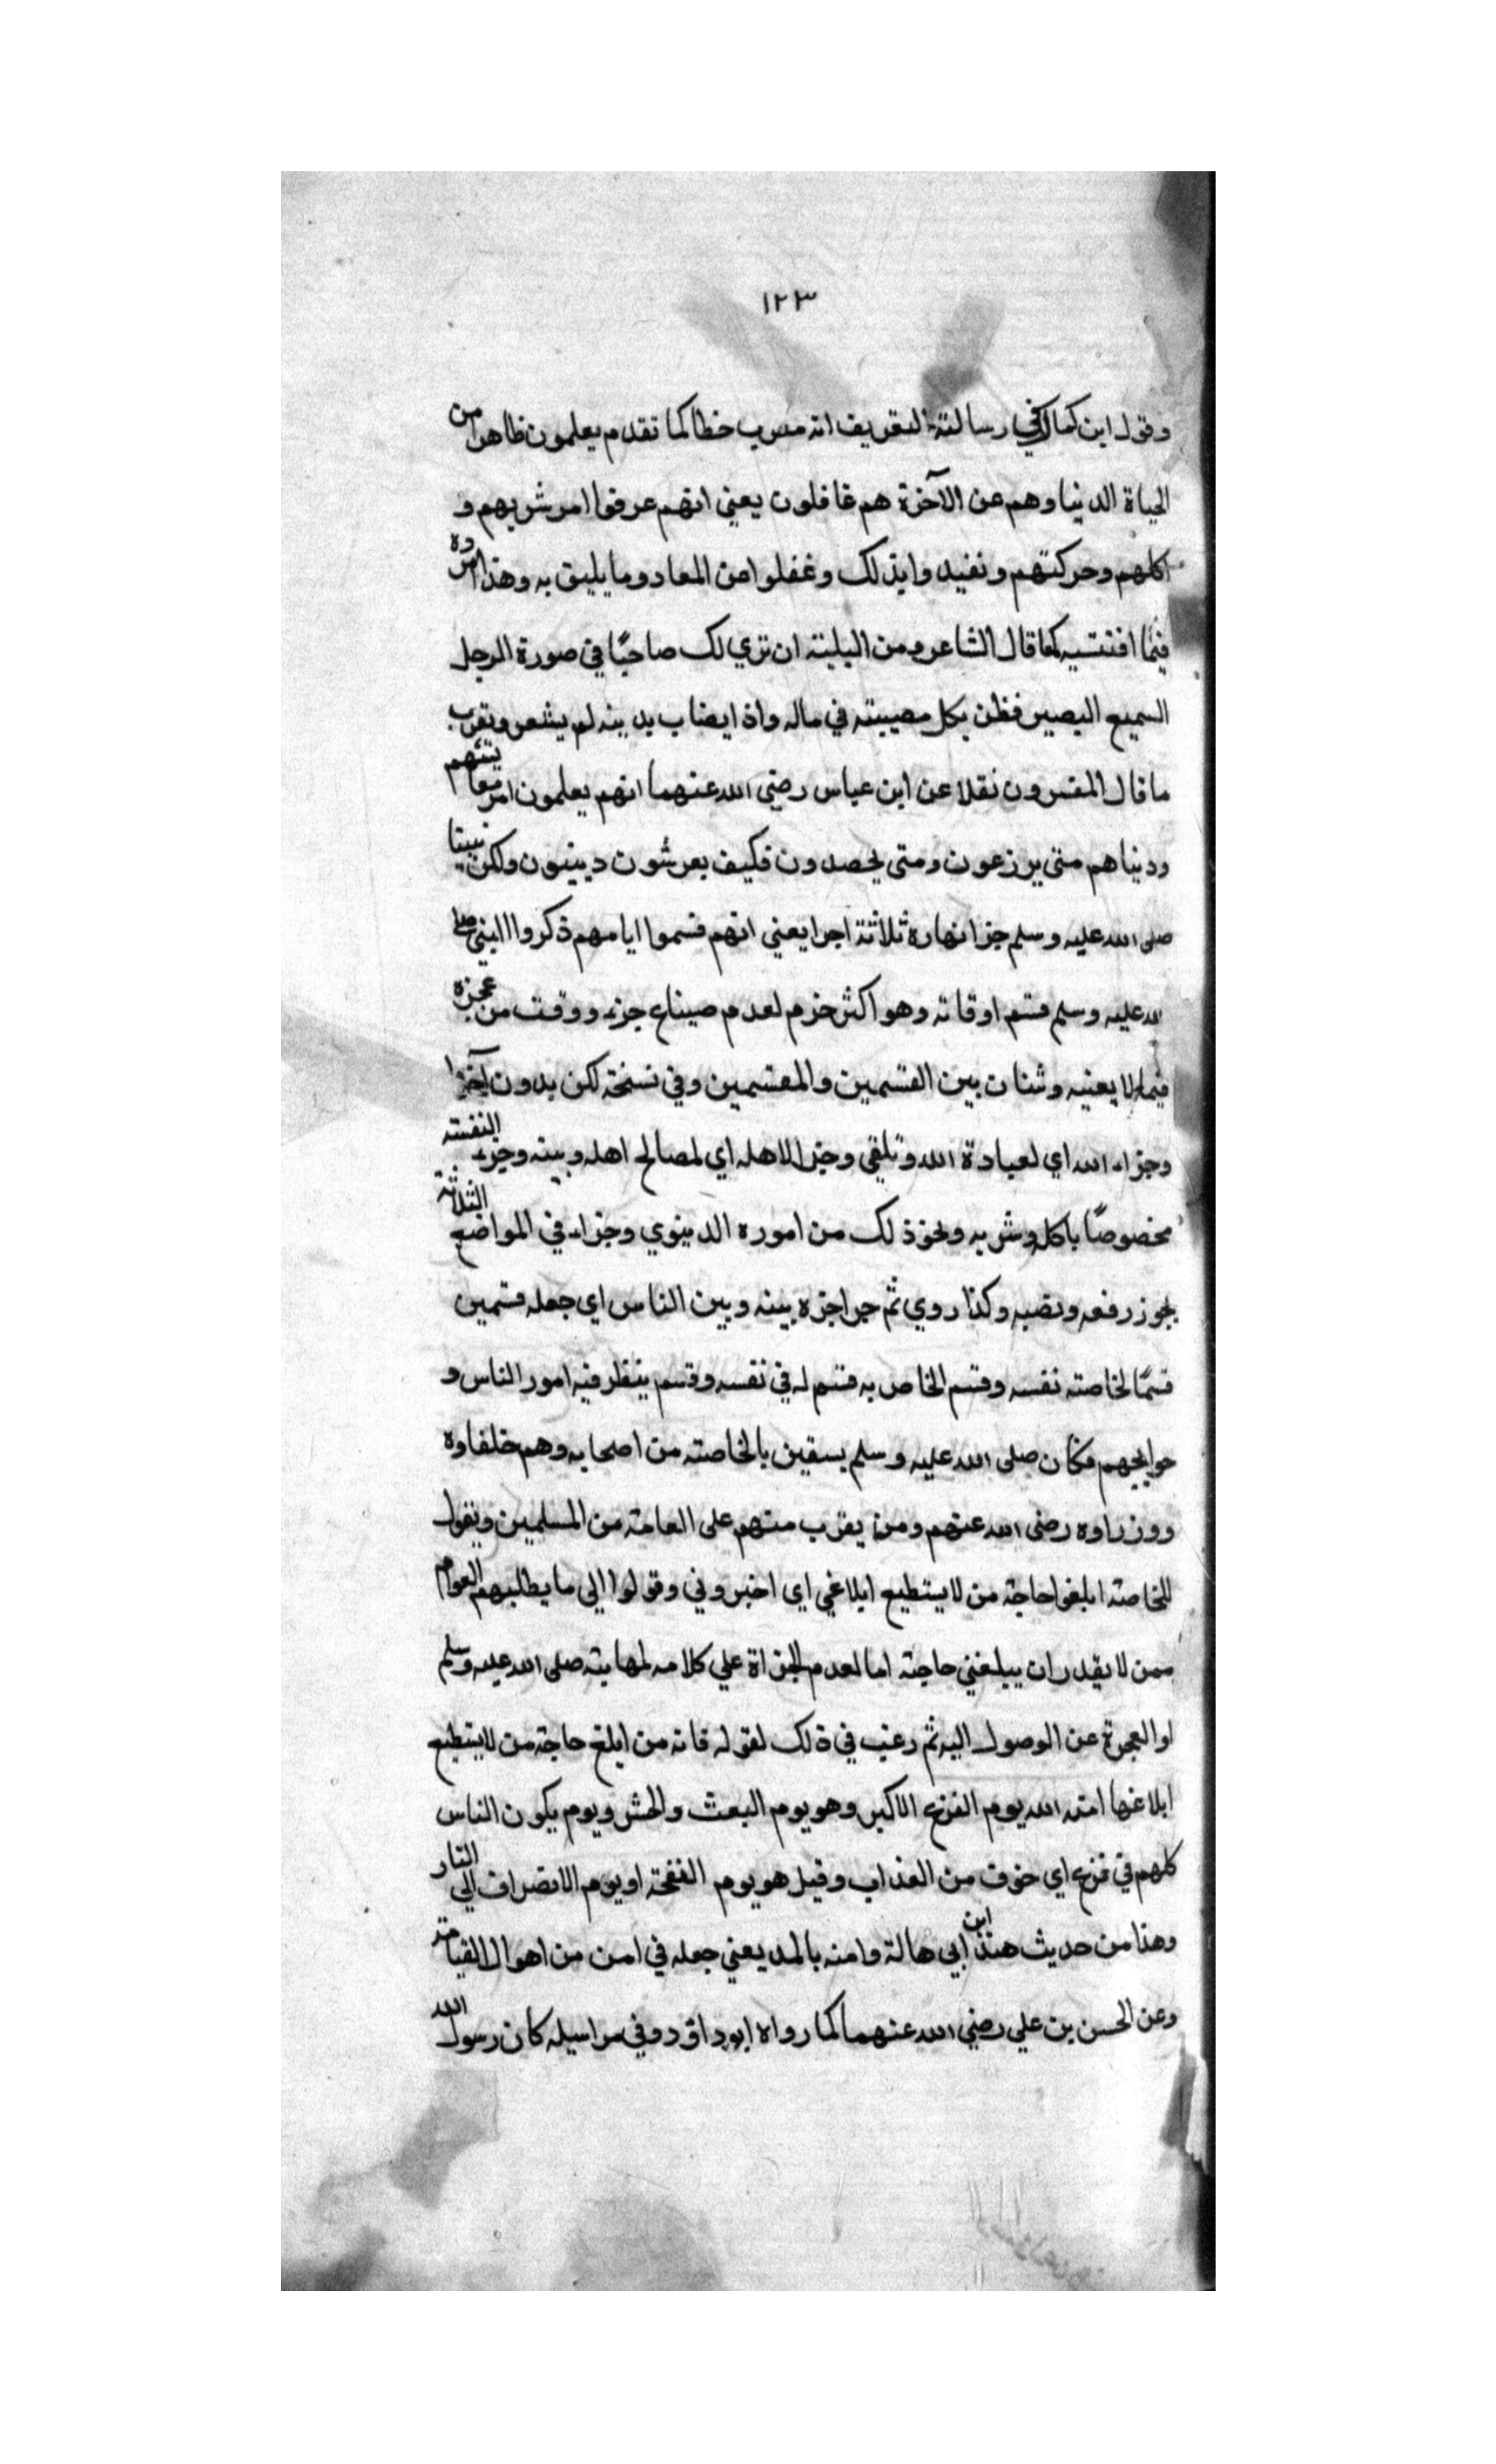 ١٢٣
وقول ابن كمال في رسالته التعريف انه معرب خطا كما تقدم يعلمون ظاهرا من
الحياة الدنيا وهم عن الآخرة هم غافلون يعني انهم عرفوا امر شربهم و
اكلهم وحركتهم ذلك وغفلوا عن المعاد وما يليق به وهذا
كما قال الشاعر ومن البلية ان تري لك صاحبًا في صورة الرجل
السميع البصير فطن بكل مصيبته في ماله واذا يصاب بدينه لم يشعر وتقرب
ما قال المفسرون نقلا عن ابن عباس رضي الله عنهما انهم يعلمون امر معايشهم
ودنياهم متى يزرعون ومتى يحصدون فكيف يعرشون ويبنون ولكن نبينا
صلى الله عليه وسلم جزا نهاره ثلاثة اجزا يعني انهم قسموا ايامهم ذكروا النبي صلى
الله عليه وسلم قسم اوقاته وهو اكثر حزم لعدم ضياع جزء ووقت من عمره
فيما لا يعنيه وشتان بين القسمين والمقسمين وفي نسخة لكن بدون
وجزاء الله اي لعبادة الله وتلقي وجزا لاهله اي لمصالح اهله وبيته وجزء لنفسه
مخصوصًا باكل وشربه ونحو ذلك من اموره الدينوي وجزاء في المواضع الثلاثة
يجوز رفعه ونصبه وكذا روي ثم جزا جزه بينه وبين الناس اي جعله قسمين
قسمًا لخاصته نفسه وقسم الخاص به قسم له في نفسه وقسم ينظر فيه امور الناس و
حوايجهم فكان صلى الله عليه وسلم يستعين بالخاصته من اصحابه وهم خلفاوه
ووزراوه رضى الله عنهم ومن يقرب منهم على العامة من المسلمين ويقول
للخاصته ابلغوا حاجة من لا يستطيع ابلاغي اي اخبروني وقولوا الي ما يطلبهم العوام
ممن لا يقدر ان يبلغني حاجته اما لعدم الجراة علي كلامه لمهابته صلى الله عليه وسلم
او العجزة عن الوصول اليه ثم رغب في ذلك لقوله فانه من ابلغ حاجة من لا يستطيع
ابلاغها امنه الله يوم الفزع الاكبر وهو يوم البعث والحشر ويوم يكون الناس
كلهم في فزع اي خوف من العذاب وقيل هو يوم النفخة او يوم الانصراف الي النار
وهذا من حديث هند ابن ابي هالة وامنه بالمد يعني جعله في امن من اهوال القيامة
وعن الحسن بن علي رضي الله عنهما كما رواه ابو داود وفي مراسيله كان رسول الله